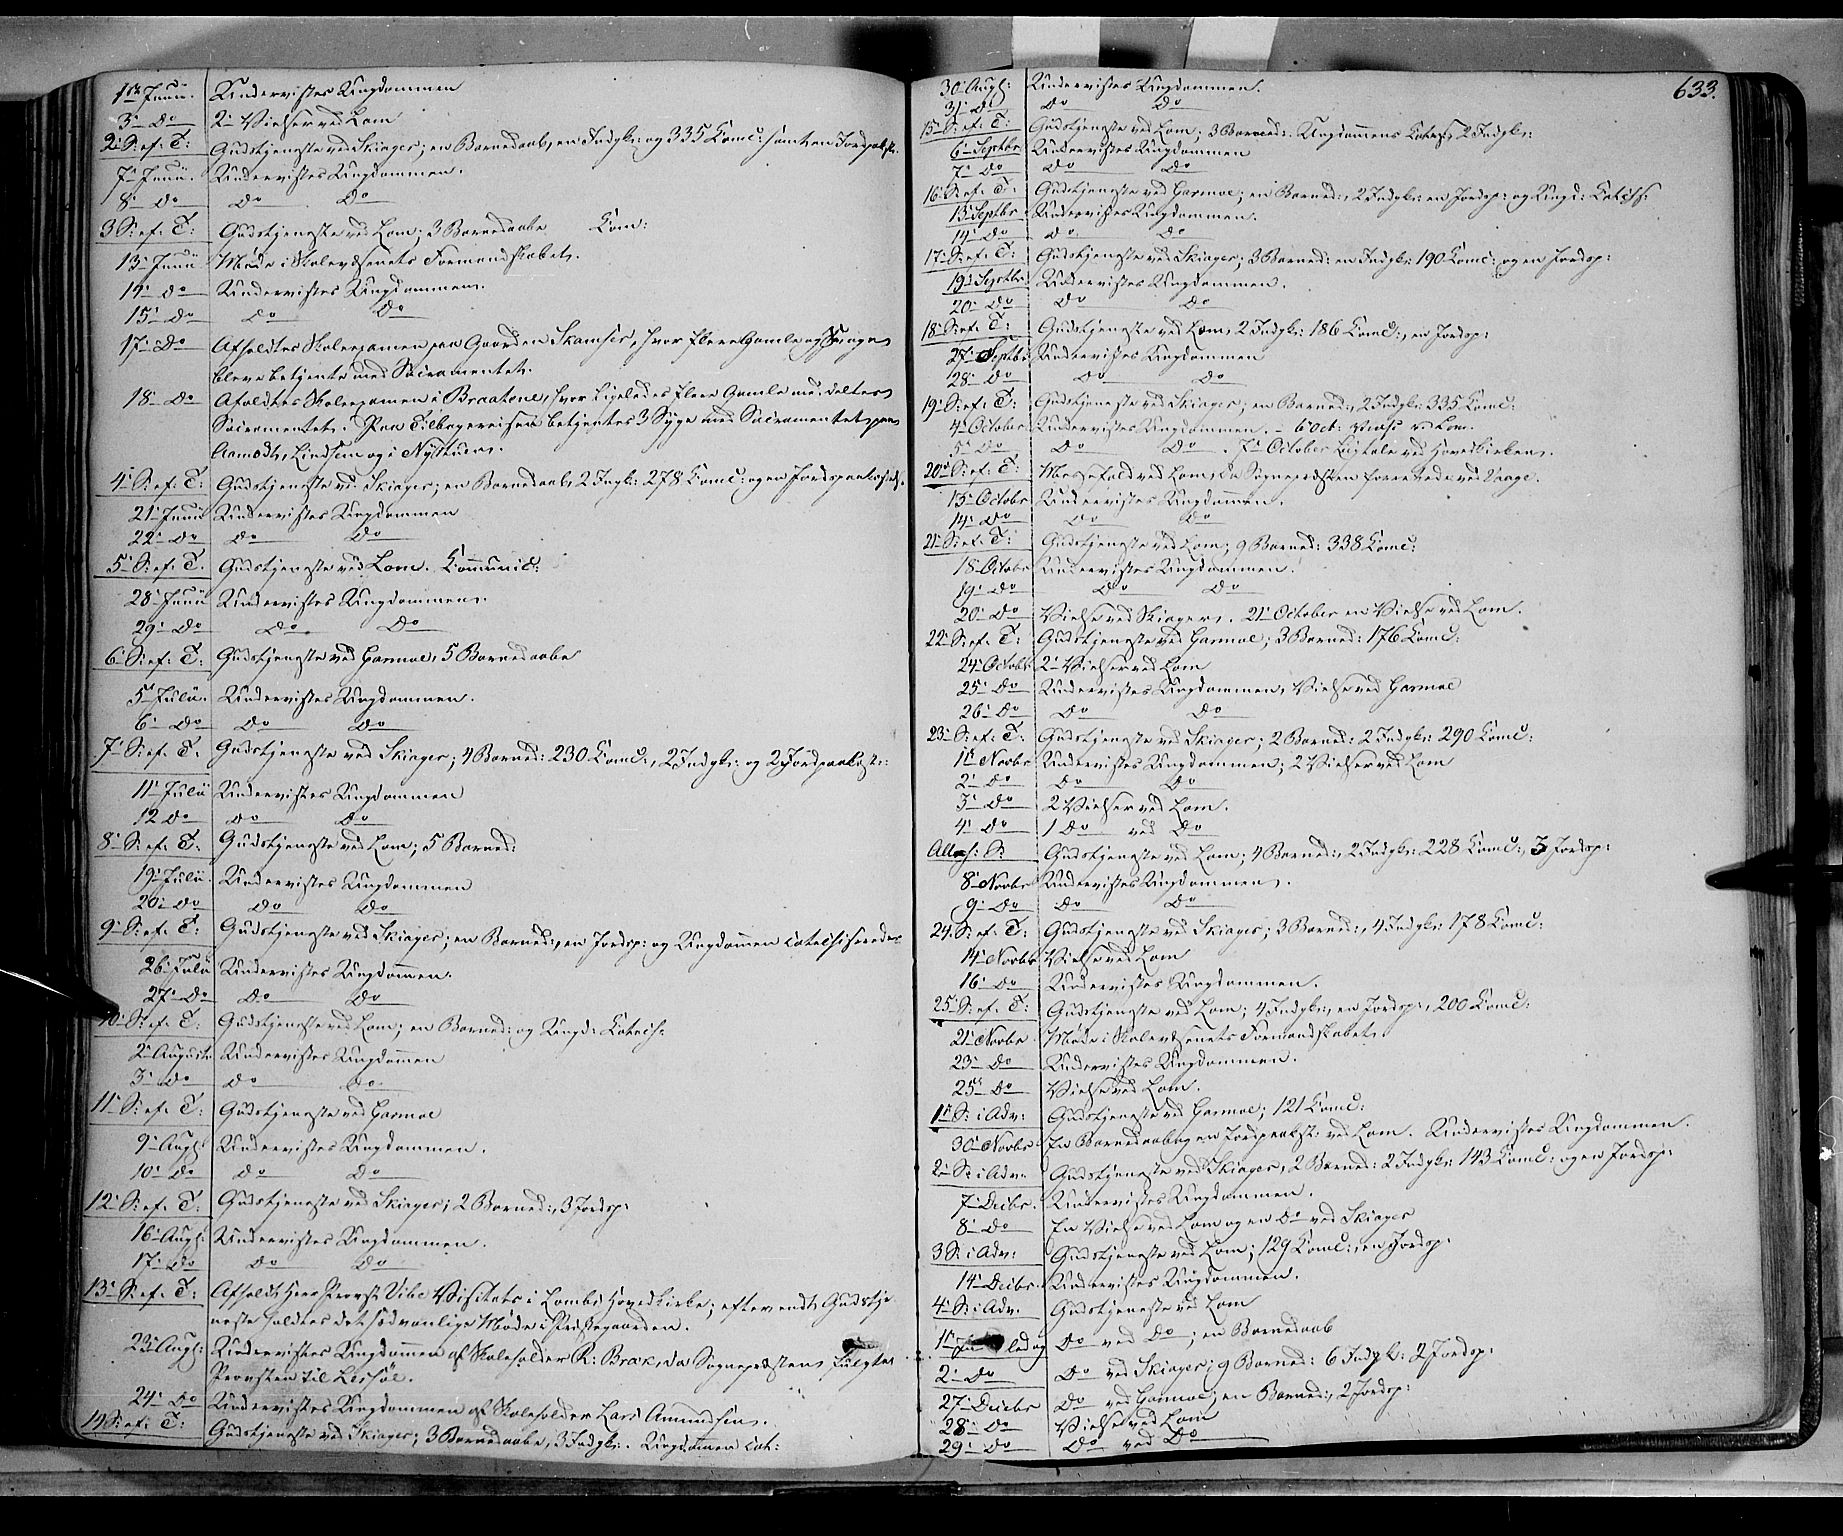 1ste Junii. Underviistes Ungdommen
3- Do 2- Vielser ved Lom
2- S: ef: T: Gudstjeneste ved Skiager; en Barnedaab, en Indgk: og 335 Comc: samt en Jordpaak:
7- Junii. Underviistes Ungdommen.
8- Do Do Do
3 S: ef: T: Gudstjeneste ved Lom; 3 Barnedaabe Com:
13- Junii Møde i Skolevæsenets Formandskabet.
14- Do Underviistes Ungdommen.
15- Do Do Do
17- Do Afholdtes Skoleexamen paa Gaarden Skamser, hvor flere Gamle og Svage
bleve betjente med Sacramentet.
18- Do Afoldtes Skoleexamen i Braatene, hvor ligeledes flere Gamle meddeltes
Sacramentet. Paa Tilbagereisen betjentes 3 Syge med Sacramentet paa
Aamodt, Lindsem og i Nystuen.
4- S: ef: T: Gudstjeneste ved Skiager; en Barnedaab, 2 Ingk: 278 Comc: og en Jordpaakastelse.
21- Junii Underviistes Ungdommen
22- Do Do Do
5- S: ef: T. Gudstjeneste ved Lom. Communic:
28- Junii Underviistes Ungdommen.
29- Do Do Do
6- S: ef: T: Gudstjeneste ved Garmoe, 5 Barnedaabe
5- Julii. Underviistes Ungdommen.
6- Do Do Do
7- S: ef: T: Gudstjeneste ved Skiager; 4 Barned: 230 Comc:, 2 Indgk: og 2 Jordpaakast:
11- Julii Underviistes Ungdommen
12 Do Do Do
8- S: ef: T: Gudstjeneste ved Lom; 5 Barned:
19- Julii. Underviistes Ungdommen
20- Do Do Do
9- S: ef: T: Gudstjeneste ved Skiager; en Barned:, en Jordsp: og Ungdommen catechiseredes
26- Julii Underviistes Ungdommen.
27- Do Do Do
10- S: ef: T: Gudstjeneste ved Lom; en Barned: og Ungd: Catech:
2- Augusti Underviistes Ungdommen
3- Do Do Do
11- S: ef: T: Gudstjeneste ved Garmoe
9- Aug: Underviistes Ungdommen.
10- Do Do Do
12- S: ef: T: Gudstjeneste ved Skiager; 2 Barned:, 3 Jordsp:
16- Aug: Underviistes Ungdommen.
17- Do Do Do
13- S: ef: T: Afholdt Herr Provst Vibe Visitats i Lombs Hovedkirke; efter endt Gudstje
neste holdtes det sædvanlige Møde i Præstegaarden.
23- Aug: Underviistes Ungdommen af Skoleholder R: Bræk, da Sognepræsten fulgte
Provsten til Lessøe.
24- Do Underviistes Ungdommen af Skoleholder Lars Amundsen.
14 S: ef: T: Gudstjeneste ved Skiager; 3 Barnedaabe, 3 Indgk:. Ungdommen Cat:
633.
30- Aug: Underviistes Ungdommen.
31- Do Do Do
15- S: ef: T: Gudstjeneste ved Lom; 3 Barned:. Ungdommens Catech:, 2 Indgk:
6- Septbr Underviistes Ungdommen
7- Do Do Do
16- S: ef: T: Gudstjeneste ved Garmoe; en Barned:, 2 Indgk: en Jordsp: og Ungd: Catech:
13- Septbr. Underviistes Ungdommen.
14- Do Do Do
17- S: ef: T: Gudstjeneste ved Skiager; 3 Barned: en Indgk: 190 Comc: og en Jordsp:
19- Septbr Underviistes Ungdommen.
20- Do Do Do
18- S: ef: T: Gudstjeneste ved Lom, 2 Indgk: 186 Comc:, en Jordsp:
27- Septbr Underviistes Ungdommen
28- Do Do Do
19- S: ef: T: Gudstjeneste ved Skiager; en Barned:, 2 Indgk: 335 Comc:
4- October Underviistes Ungdommen. - 6 Oct: Vielse v. Lom.
5- Do Do Do. 7- October Liigtale ved Hovedkirken.
20- S: ef: T: Messefald ved Lom, da Sognepræsten forrettede ved Vaage.
13- Octobr Underviistes Ungdommen.
14- Do Do Do
21- S: ef: T: Gudstjeneste ved Lom; 9 Barned: 338 Comc:
18- Octobr Underviistes Ungdommen.
19- Do Do Do
20- Do Vielse ved Skiager. 21- October en Vielse ved Lom.
22- S: ef: T: Gudstjeneste ved Garmoe; 3 Barned: 176 Comc:
24- Octobr 2- Vielser ved Lom
25- Do Underviistes Ungdommen, Vielse ved Garmoe
26- Do Do Do
23- S: ef: T: Gudstjeneste ved Skiager; 2 Barned: 2 Indgk: 290 Comc:
1ste Novbr Underviistes Ungdommen; 2 Vielser ved Lom
2- Do Do Do
3- Do 2 Vielser ved Lom.
4- Do 1 Do ved Do
Alleh: S: Gudstjeneste ved Lom; 4 Barned:, 2 Indgk: 228 Comc:, 3 Jordsp:
8- Novbr Underviistes Ungdommen.
9- Do Do Do
24. S: ef: T: Gudstjeneste ved Skiager; 3 Barned:, 4 Indgk: 178 Comc:
14- Novbr Vielse ved Lom
16- Do Underviistes Ungdommen.
25- S: ef: T: Gudstjeneste ved Lom; 4 Indgk:, en Jordsp:, 200 Comc:
21- Novbr. Møde i Skolevæsenets Formandskabet.
23- Do Underviistes Ungdommen.
25- Do Vielse ved Lom.
1ste S: i Adv: Gudstjeneste ved Garmoe; 121 Comc:
30- Novbr En Barnedaab og en Jordpaakst: ved Lom. Underviistes Ungdommen.
2- S: i Adv: Gudstjeneste ved Skiager, 2 Barned: 2 Indgk: 143 Comc: og en Jordsp:
7- Decbr. Underviistes Ungdommen.
8- Do En Vielse ved Lom og en Do ved Skiager
3 S: i Adv: Gudstjeneste ved Lom; 129 Comc:, en Jordsp:
14- Decbr. Underviistes Ungdommen.
4- S: i Adv. Gudstjeneste ved Lom
1ste Juledag Do ved Do; en Barnedaab
2- Do Do ved Skiager; 9 Barned: 6 Indgk: 2 Jordsp:
27- Decbr Do ved Garmoe; en Barned:, 2 Jordsp:
28- Do Vielse ved Lom
29- Do Do ved Do